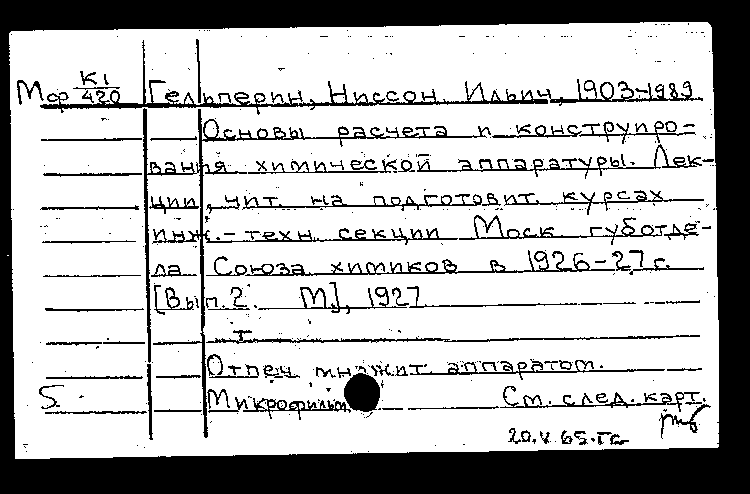 Мфр К1/420 Гельперин, Ниссон Ильич, 1903-1989
Основы расчета и конструиро=
вания химической аппаратуры. Лек-
ции, чит. на подготовит. курсах
инж.-техн. секции Моск. губотде-
ла Союза химиков в 1926-27 г.
[Вып. 2. М.], 1927
т
Отпеч. множит. аппаратом.
5. Микрофильм См. след. карт.
20.V 65.